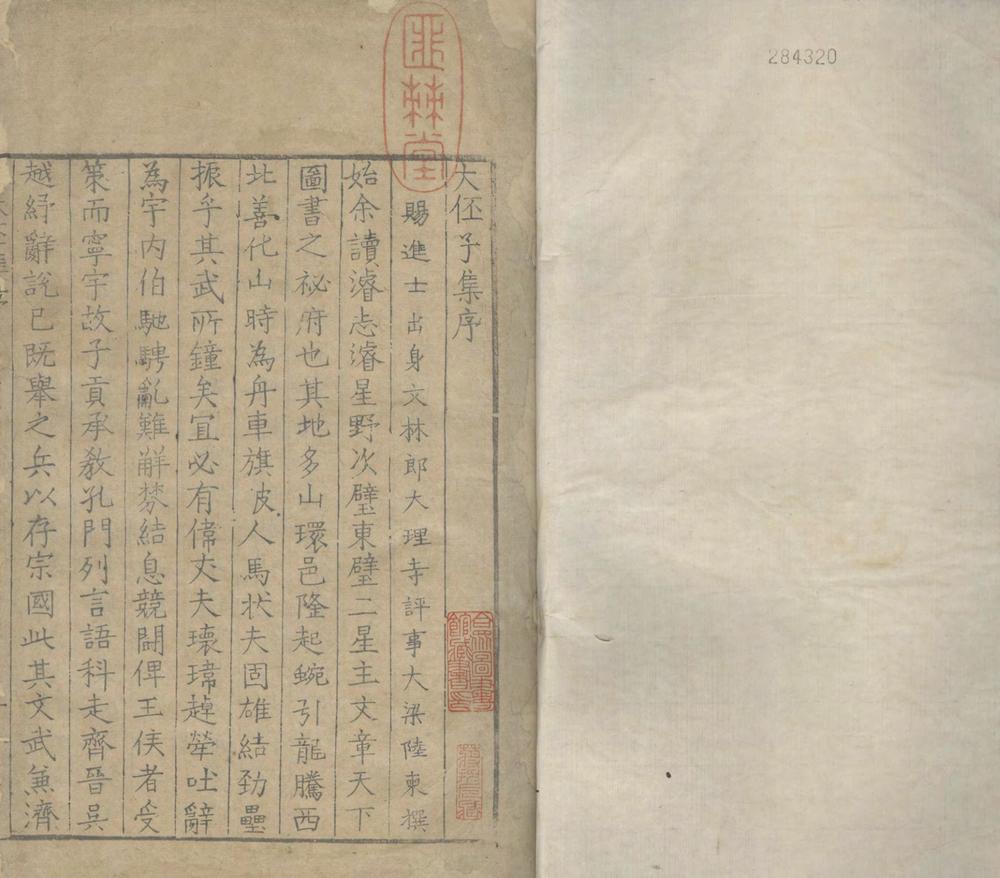 284320
大伾子集序
賜進士出身文林郎大理寺評事大梁陸柬撰
始余讀濬志濬星野次璧東璧二星主文章天下
圖書之祕府也其地多山環邑隆起蜿引龍騰西
北善化山時為舟車旗皮人馬狀夫固雄結勁壘
振乎其武所鐘矣宜必有偉丈夫瓌瑋趠犖吐辭
為宇內伯馳騁亂難解棼結息競鬬俾王侯者受
策而寧宇故子貢承教孔門列言語科走齊晉吳
越紓辭說已既舉之兵以存宗國此其文武兼濟